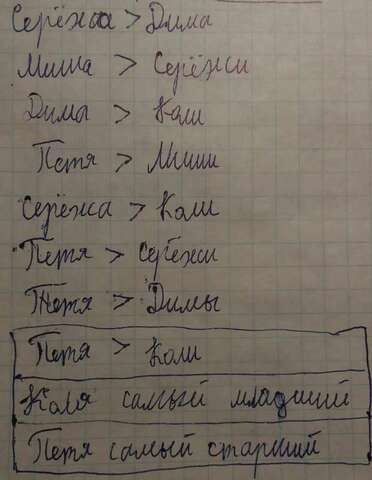 Серёжа > Дима
Миша > Серёжи
Димы > Коли
Петя > Миши
Серёжа > Коли
Петя > Серёжи
Петя > Димы
Петя > Коли
Коля самый младший
Петя самый старший